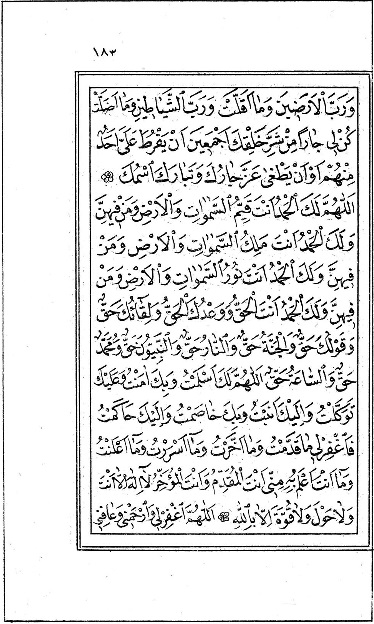 ١٨٣
وَرَبَّ الْاَرَضٖينَ وَمَا اَقَلَّتْ وَرَبَّ الشَّيَاطٖينِ وَمَا اَضَلَّتْ
كُنْ لٖى جَارًا مِنْ شَرِّ خَلْقِكَ اَجْمَعٖينَ اَنْ يَفْرُطَ عَلَىَّ اَحَدٌ
مِنْهُمْ اَوْ اَنْ يَطْغٰى عَزَّ جَارُكَ وَتَبَارَكَ اسْمُكَ
اَللّٰهُمَّ لَكَ الْحَمْدُ اَنْتَ قَيِّمُ السَّمٰوَاتِ وَالْاَرْضِ وَمَنْ فٖيهِنَّ
وَلَكَ الْحَمْدُ اَنْتَ مَلِكُ السَّمٰوَاتِ وَالْاَرْضِ وَمَنْ
فٖيهِنَّ وَلَكَ الْحَمْدُ اَنْتَ نُورُ السَّمٰوَاتِ وَالْاَرْضِ وَمَنْ
فٖيهِنَّ وَلَكَ الْحَمْدُ اَنْتَ الْحَقُّ وَوَعْدُكَ الْحَقُّ وَلِقَائُكَ حَقٌّ
وَقَوْلُكَ حَقٌّ وَالْجَنَّةُ حَقٌّ وَالنَّارُ حَقٌّ وَالنَّبِيُّونَ حَقٌّ وَمُحَمَّدٌ
حَقٌّ وَالسَّاعَةُ حَقٌّ اَللّٰهُمَّ لَكَ اَسْلَمْتُ وَبِكَ اٰمَنْتُ وَعَلَيْكَ
تَوَكَّلْتُ وَاِلَيْكَ اَنَبْتُ وَبِكَ خَاصَمْتُ وَاِلَيْكَ حَاكَمْتُ
فَاغْفِرْ لٖى مَا قَدَّمْتُ وَمَا اَخَّرْتُ وَمَا اَسْرَرْتُ وَمَا اَعْلَنْتُ
وَمَا اَنْتَ اَعْلَمُ بِهٖ مِنّٖى اَنْتَ الْمُقَدِّمُ وَاَنْتَ الْمُؤَخِّرُ لَا اِلٰهَ اِلَّا اَنْتَ
وَلَا حَوْلَ وَلَا قُوَّةَ اِلَّا بِاللّٰهِ اَللّٰهُمَّ اغْفِرْ لٖى وَارْحَمْنٖى وَعَافِنٖى